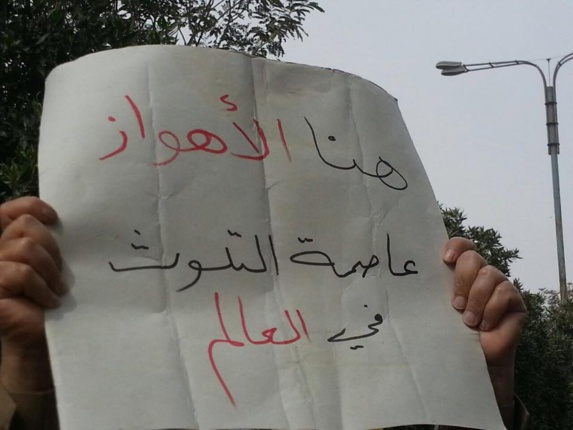 هنا الأهواز
عاصمة التلوث
في العالم